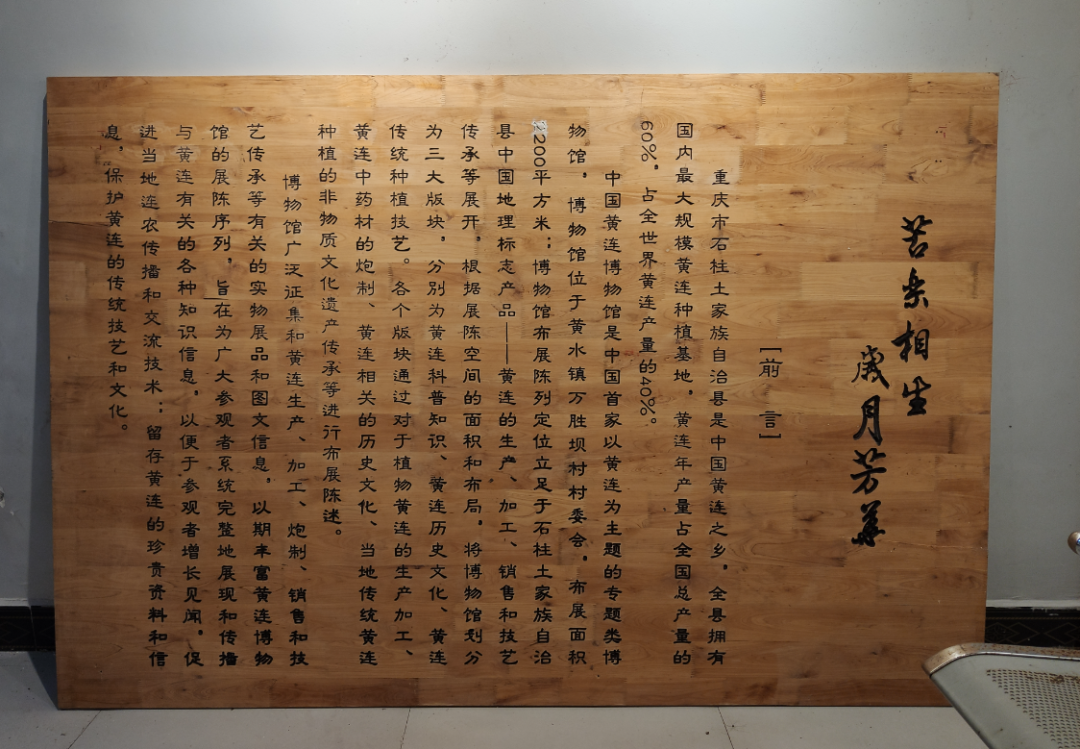 苦乐相生
歲月芳華
[前 言]
重庆市石柱土家族自治县是中国黄连之乡，全县拥有
国内最大规模黄连种植基地，黄连年产量占全国总产量的
60%，占全世界黄连产量的40%。
中国黄连博物馆是中国首家以黄连为主题的专题类博
物馆，博物馆位于黄水镇万胜坝村村委会。布展面积
200平方米；博物馆布展陈列定位立足于石柱土家族自治
县中国地理标志产品——黄连的生产、加工、销售和技艺
传承等展开，根据展陈空间的面积和布局，将博物馆划分
为三大版块，分别为黄连科普知识、黄连历史文化、黄连
传统种植技艺。各个版块通过对于植物黄连的生产加工、
黄连中药材的炮制、黄连相关的历史文化、当地传统黄连
种植的非物质文化遗产传承等进行布展陈述。
博物馆广泛征集和黄连生产、加工、炮制、销售和技
艺传承等有关的实物展品和图文信息，以期丰富黄连博物
馆的展陈序列，旨在为广大参观者系统完整地展现和传播
与黄连有关的各种知识信息，以便于参观者增长见闻，促
进当地连农传播和交流技术；留存黄连的珍贵资料和信
息，保护黄连的传统技艺和文化。